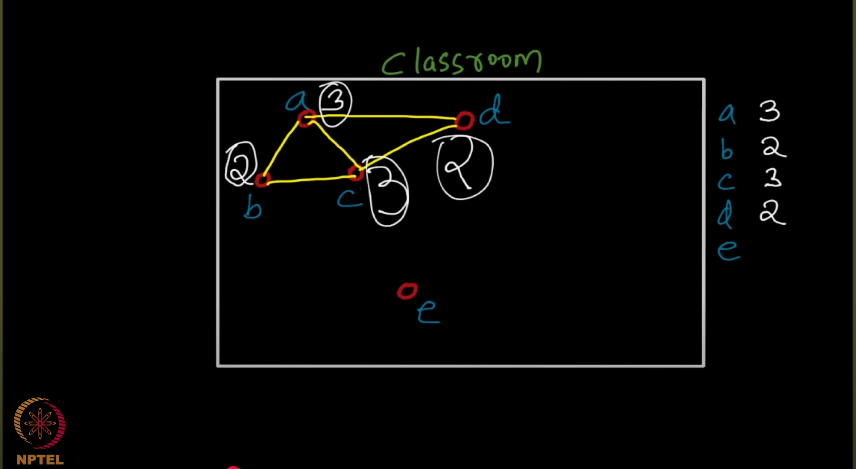 Classroom
a 3 d
2 b c 3 2
e
a 3
b 2
c 3
d 2
e
NPTEL